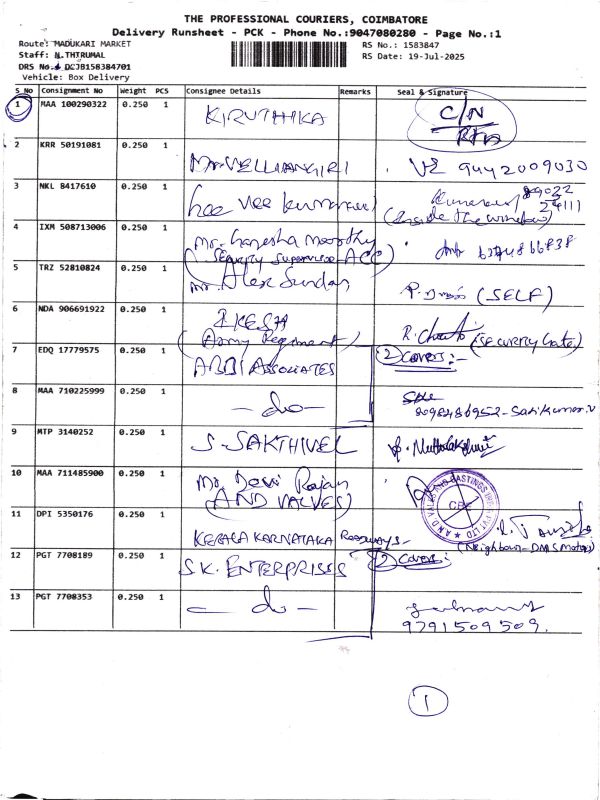 THE PROFESSIONAL COURIERS, COIMBATORE
Delivery Runsheet - PCK - Phone No.:9047080280 - Page No.:1
Route: MADUKARI MARKET
RS No.: 1583847
Staff: N.THIRUMAL
RS Date: 19-Jul-2025
DRS No. DCJB158384701
Vehicle: Box Delivery
S No Consignment No Weight PCS Consignee Details Remarks Seal & Signature
1 MAA 100290322 0.250 1 KIRUTHIKA C/N
2 KRR 50191081 0.250 1 Mr. VELLIANGIRI 9442009030
3 NKL 8417610 0.250 1 Vee (Inside the window)
4 IXM 508713006 0.250 1 Mr. Ganesha moorthy
(Security Supervisor-ACC)
5 TRZ 52810824 0.250 1 Mr. Alex Sundar (SELF)
6 NDA 906691922 0.250 1 (Army Regiment) (SECURITY Gate)
7 EDQ 17779575 0.250 1 ABBI ASSOCIATES 2 covers:-
8 MAA 710225999 0.250 1 — do — Sasikumar.V
9 MTP 3140252 0.250 1 S. SAKTHIVEL
10 MAA 711485900 0.250 1 Mr. Devi Rajan
(AND VALVES)
11 DPI 5350176 0.250 1 KERALA KARNATAKA Roadways- (Neighbour-DMS Motors)
12 PGT 7708189 0.250 1 S.K. ENTERPRISES 2 covers:
13 PGT 7708353 0.250 1 — do — 9791509509.
1